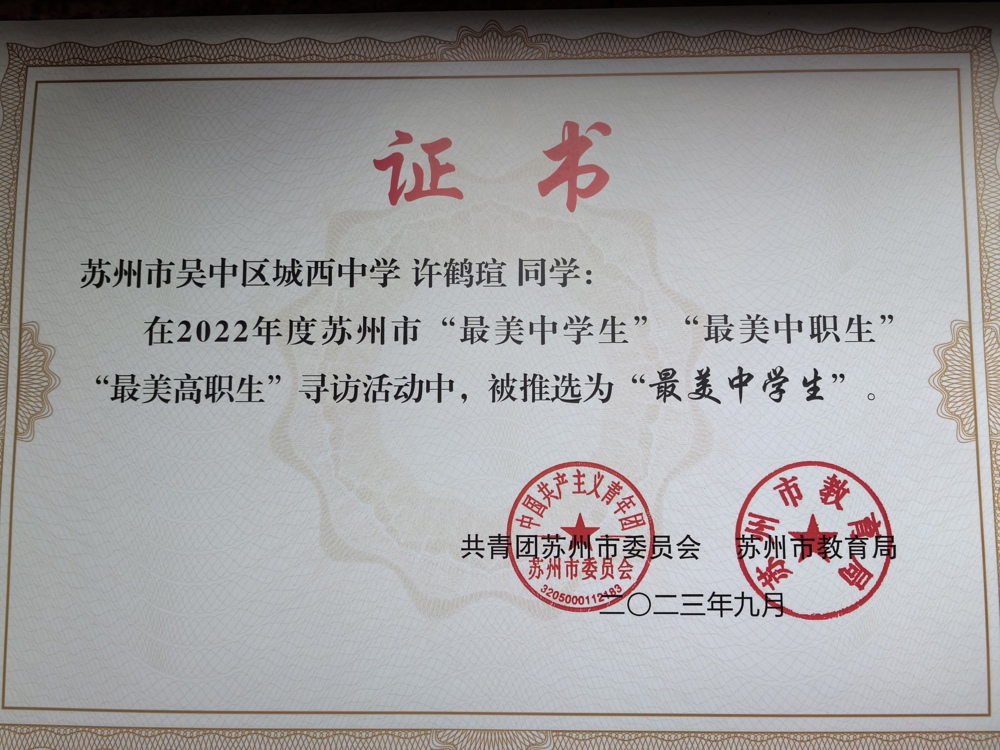 证书
苏州市吴中区城西中学 许鹤瑄 同学：
在2022年度苏州市“最美中学生”“最美中职生”
“最美高职生”寻访活动中，被推选为“最美中学生”。
中国共产主义青年团
苏州市委员会
3205000112183
苏州市教育局
共青团苏州市委员会 苏州市教育局
二〇二三年九月